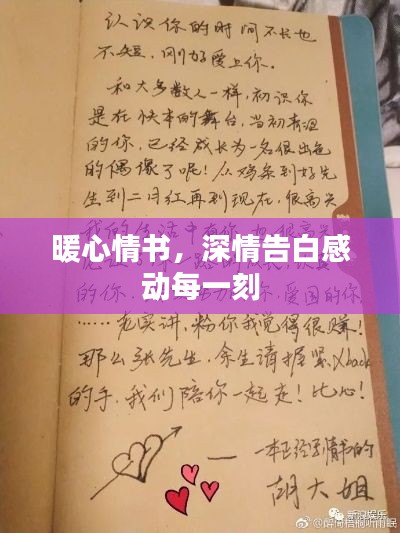 认识你的时间不长也
不短，刚好爱上你。
和大多数人一样，初识你
是在快本的舞台，当初青涩
的你，已经成长为一名很出色
的偶像了呢！从鸡条到好先
生到二月红再到现在，很高兴
暖心情书，深情告白感
动每一刻
爱国的你
……老实讲，粉你我觉得很赚！
那么张先生，余生请握紧Xback
的手，我们陪你一起走！比心！
一本正经写情书的
胡大姐
新浪娱乐
@醉倚梧桐听雨眠